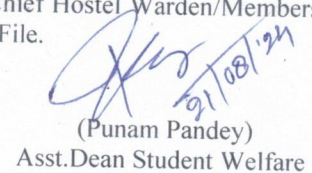 Chief Hostel Warden/Members
File.
21/08/'24
(Punam Pandey)
Asst.Dean Student Welfare